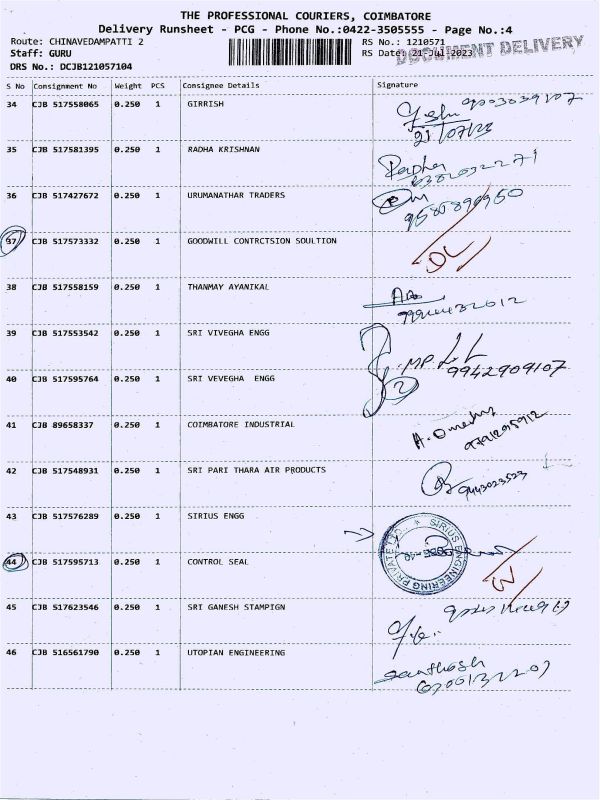 THE PROFESSIONAL COURIERS, COIMBATORE
Delivery Runsheet - PCG - Phone No.:0422-3505555 - Page No.:4
Route: CHINAVEDAMPATTI 2 RS No.: 1210571
Staff: GURU RS Date: 21-Jul-2023
DOCUMENT DELIVERY
DRS No.: DCJB121057104
S No Consignment No Weight PCS Consignee Details Signature
34 CJB 517558065 0.250 1 GIRRISH
21/07/23
35 CJB 517581395 0.250 1 RADHA KRISHNAN Radha
36 CJB 517427672 0.250 1 URUMANATHAR TRADERS
37 CJB 517573332 0.250 1 GOODWILL CONTRCTSION SOULTION
38 CJB 517558159 0.250 1 THANMAY AYANIKAL
39 CJB 517553542 0.250 1 SRI VIVEGHA ENGG
9942909107
40 CJB 517595764 0.250 1 SRI VEVEGHA ENGG 2
41 CJB 89658337 0.250 1 COIMBATORE INDUSTRIAL
42 CJB 517548931 0.250 1 SRI PARI THARA AIR PRODUCTS
9443023523
43 CJB 517576289 0.250 1 SIRIUS ENGG
SIRIUS ENGINEERING PRIVATE LTD.
44 CJB 517595713 0.250 1 CONTROL SEAL
45 CJB 517623546 0.250 1 SRI GANESH STAMPIGN
46 CJB 516561790 0.250 1 UTOPIAN ENGINEERING
Santhosh